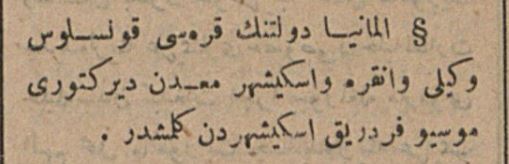 § المانيا دولتنك قره‌سى قونسلوس
وكيلى وانقره واسكيشهر معدن ديركتورى
موسيو فردريق اسكيشهردن كلمشدر .